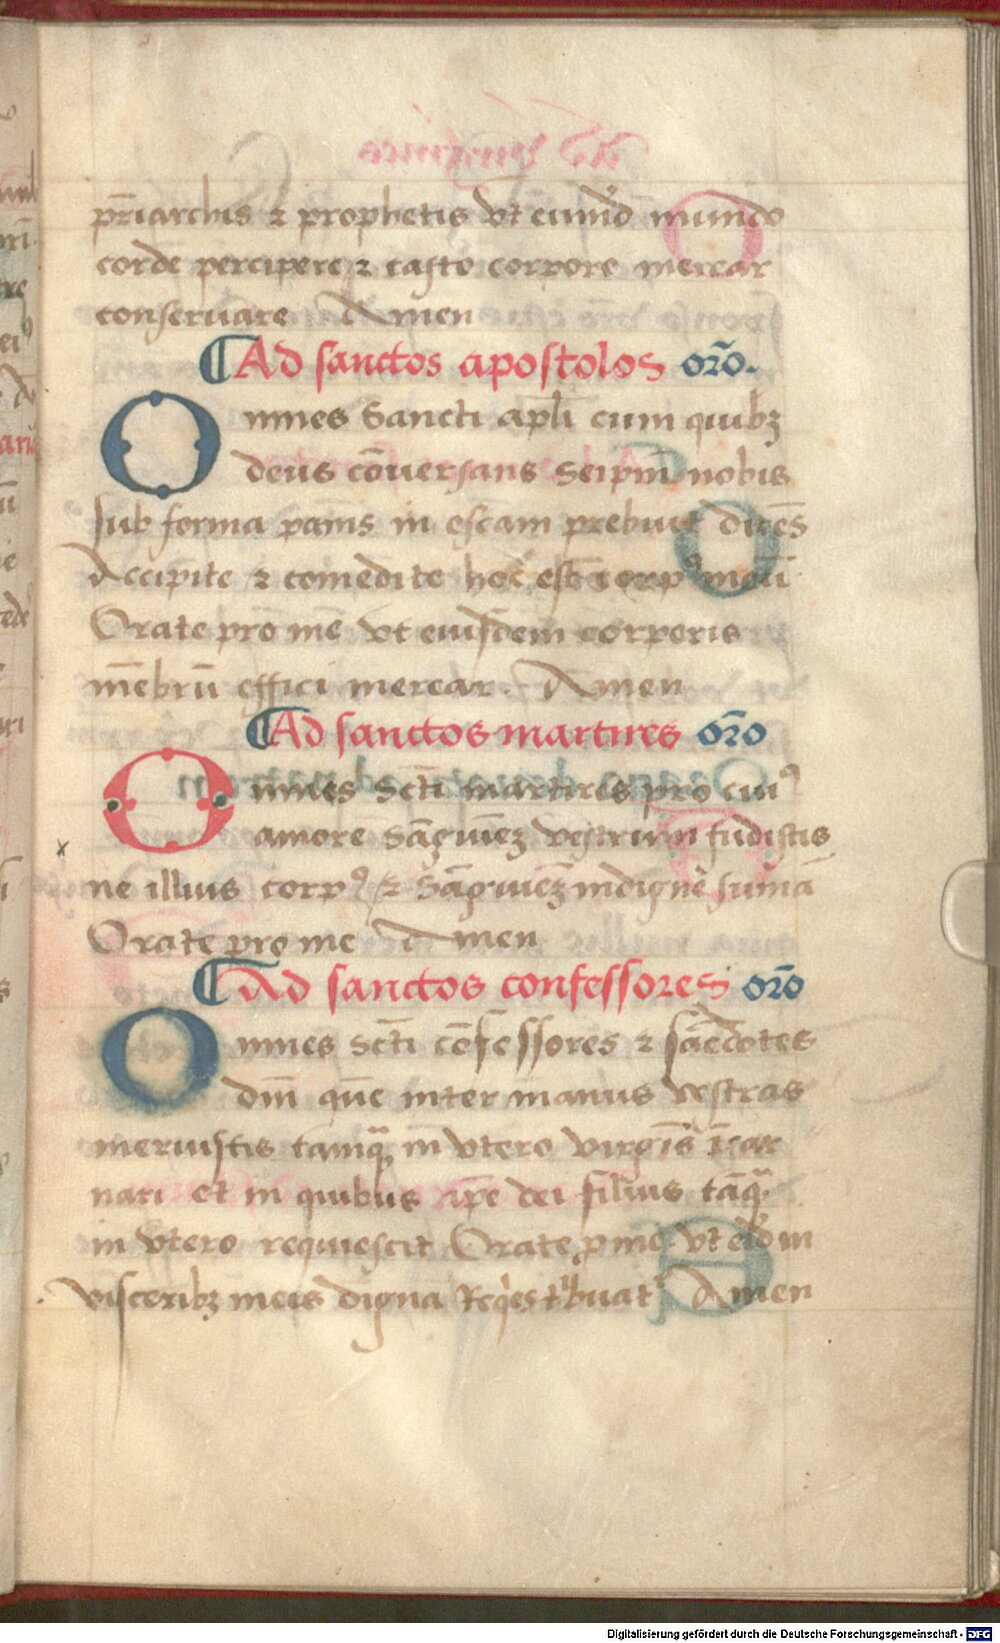 pr̄iarchis ⁊ prophetis vt eumd̄ mundo
corde percipere ⁊ casto corpore merear
conseruare Amen
¶Ad sanctos apostolos or̄o.
Omnes Sancti apl̄i cum quibꝫ
deus cōuersans Seipm̄ nobis
sub forma panis in escam prebuit dicēs
Accipite ⁊ comedite hoc est corpꝰ meū
Orate pro me vt eiusdem corporis
mēbrū effici merear. Amen
¶Ad sanctos martires or̄o
Omnes Sc̄ti martires pro cuiꝰ
amore Sāguinēꝫ vestrum fudistis
ne illius corpꝰ ⁊ Sāguinēꝫ indigne sumā
Orate pro me Amen
¶Ad sanctos confessores or̄o
Omnes Sc̄ti cōfessores ⁊ sac̄dotes
dn̄i que inter manus vestras
meruistis tamqᷓ in vtero virgīs īcar
nari et in quibus ip̄e dei filius tāqᷓ
in vtero requiescit Orate ꝓ me vt
visceribꝫ meis digna Amen
Digitalisierung gefördert durch die Deutsche Forschungsgemeinschaft - DFG